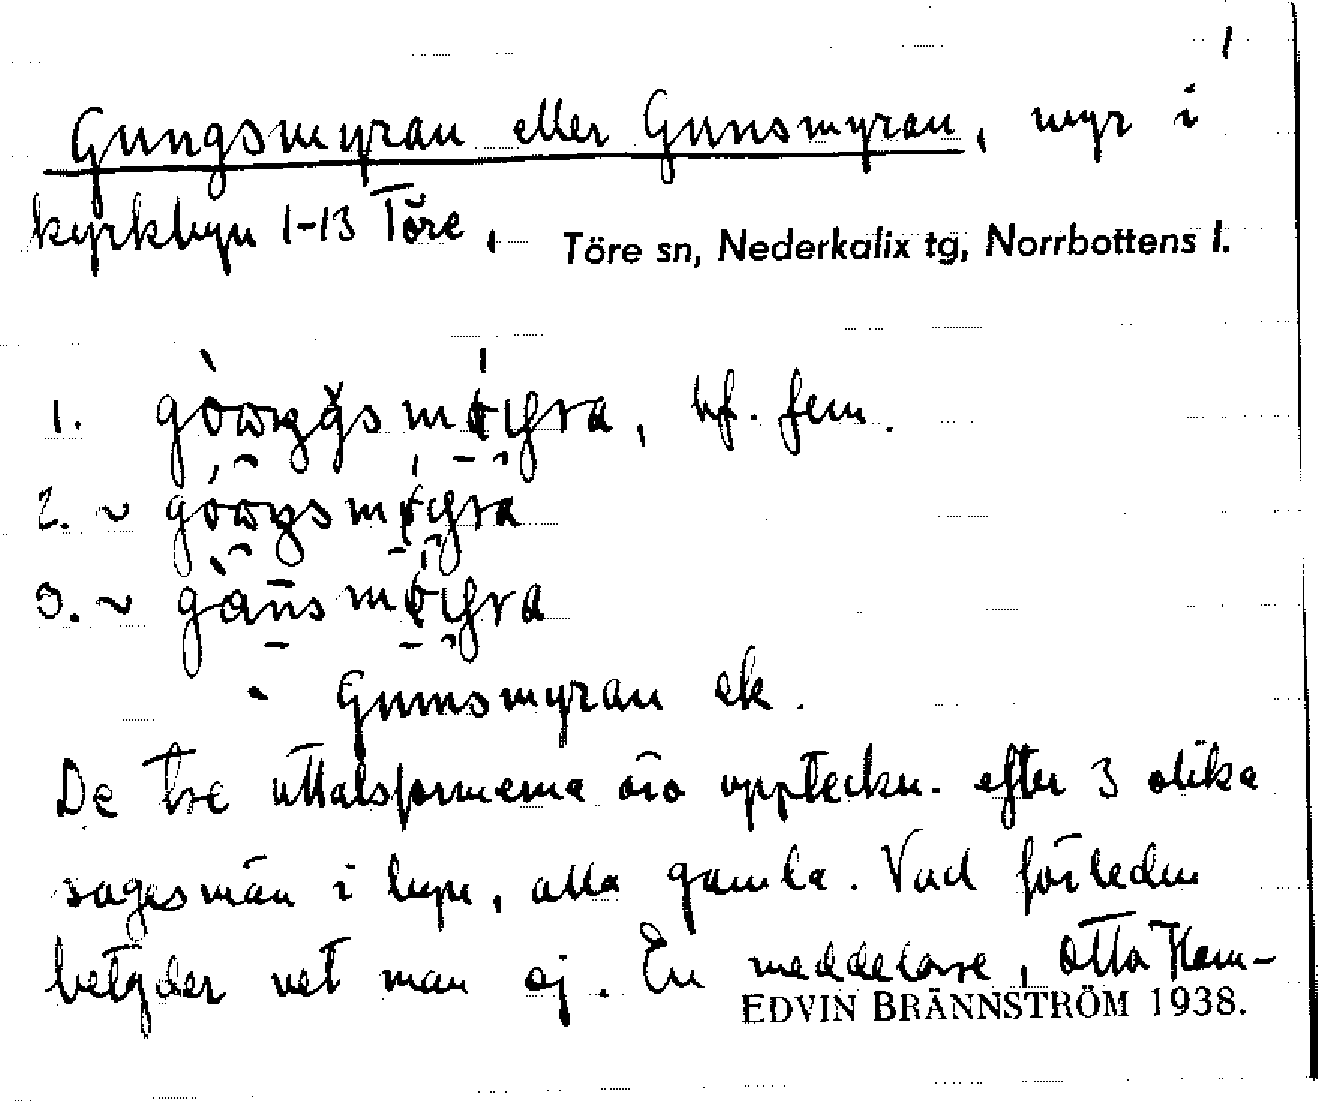 1
Gungsmyran eller Gunsmyran, myr i
kyrkbyn 1-13 Töre.
Töre sn, Nederkalix tg, Norrbottens l.
1. , bf. fem.
2. ~
3. ~
Gunnsmyran ek.
De tre uttalsformerna äro uppteckn. efter 3 olika
sagesmän i byn, alla gamla. Vad förleden
betyder vet man ej. En meddelare, Otto Hem-
EDVIN BRÄNNSTRÖM 1938.